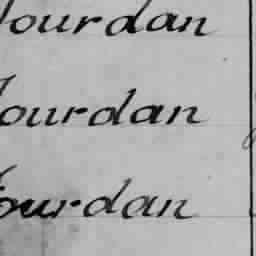 Jourdan
Jourdan
Jourdan